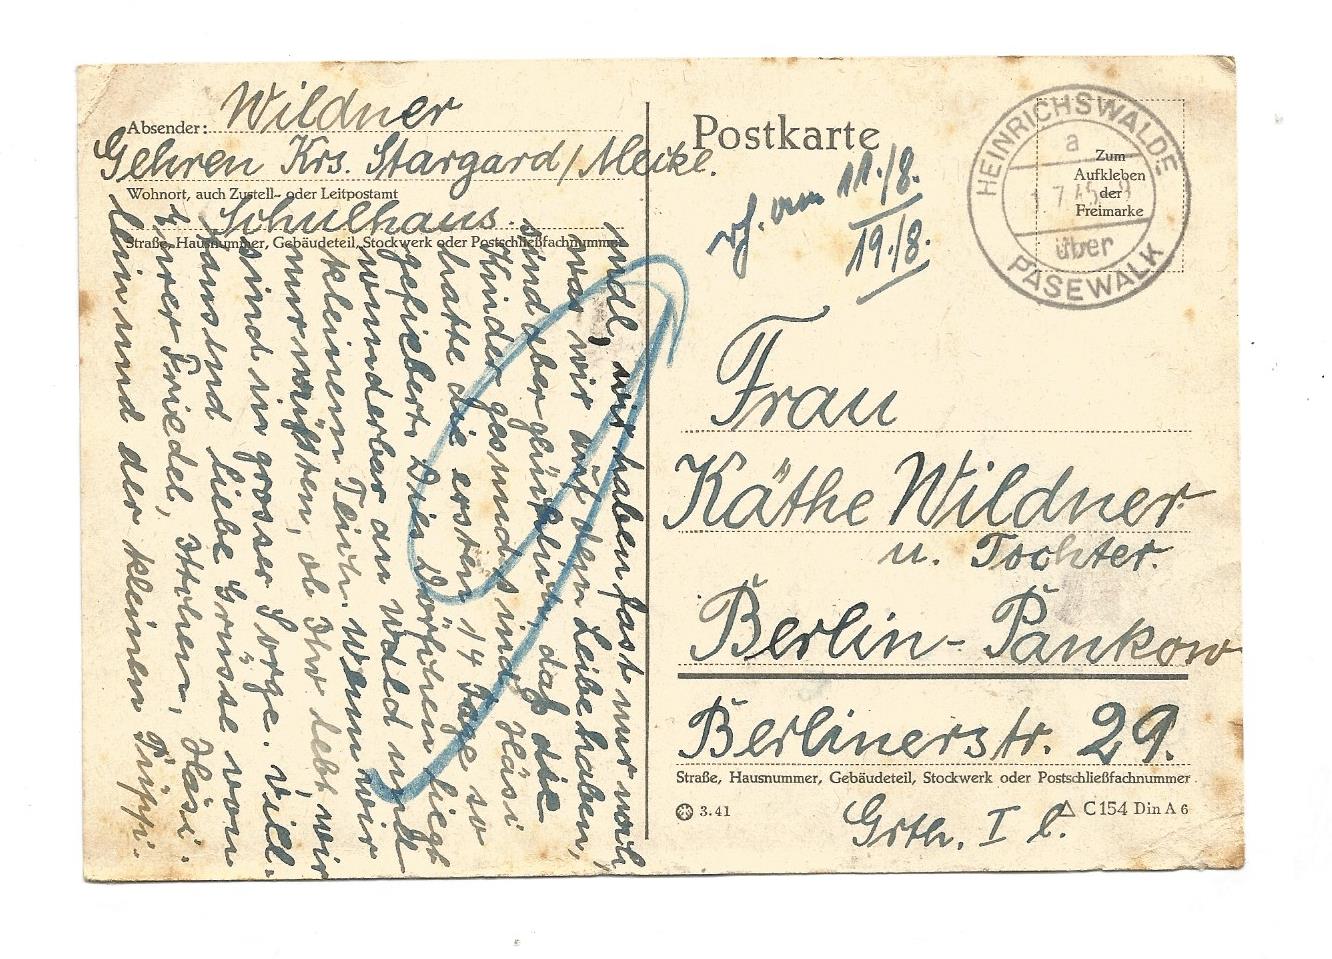 Absender: Wildner
Gehren Krs. Stargard/Meckl.
Wohnort, auch Zustell- oder Leitpostamt
Schulhaus.
Straße, Hausnummer, Gebäudeteil, Stockwerk oder Postschließfachnummer
und, wir haben fast nur noch,
was wir auf dem Leibe haben,
sind aber glücklich, daß die
Kinder gesund sind. Häsi
hatte die ersten 14 Tage so
gefiebert. Das Dörfchen liegt
wunderbar an Wald und
kleinem Teich. Wenn wir
nur wüßten, ob Ihr lebt wir
sind in grosser Sorge. Viel
tausend liebe Grüsse von
Eurer Friedel, Häsi.
und der kleinen Püppi.
Postkarte
11./8.
19./8.
HEINRICHSWALDE
a
1.7.45
über
PASEWALK
Zum
Aufkleben
der
Freimarke
Frau
Käthe Wildner
u. Tochter.
Berlin-Pankow
Berlinerstr. 29.
Straße, Hausnummer, Gebäudeteil, Stockwerk oder Postschließfachnummer
3.41
C 154 Din A 6
Grth. I l.